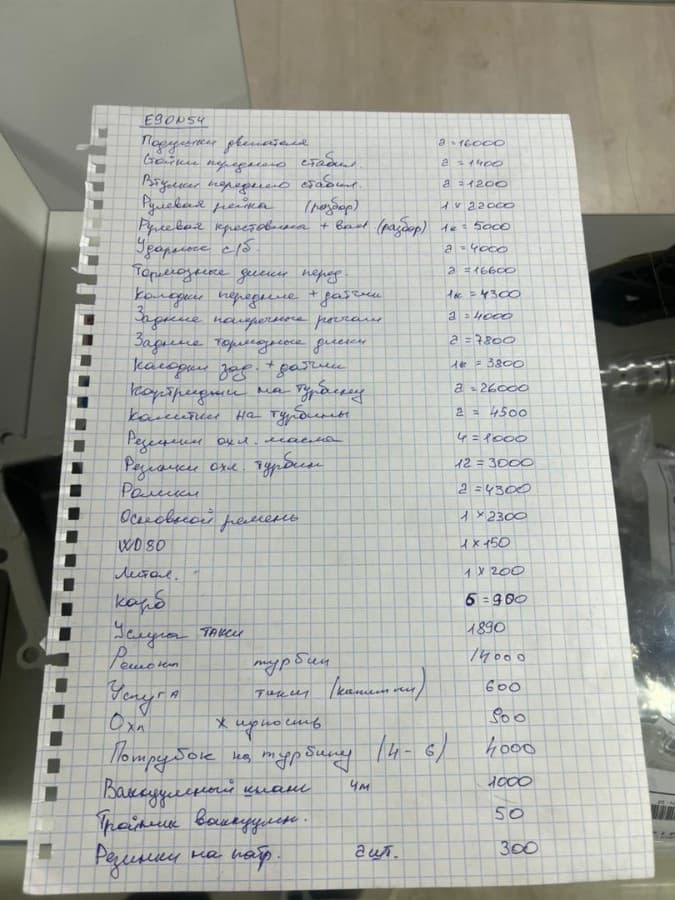 E90N54
Подушки двигателя 2=16000
Стойки переднего стабил. 2=1400
Втулки переднего стабил. 2=1200
Рулевая рейка (разбор) 1×22000
Рулевая крестовина + вал (разбор) 1к=5000
Ударные с/б. 2=4000
Тормозные диски перед. 2=16600
Колодки передние + датчики 1к=4300
Задние поперечные рычаги 2=4000
Задние тормозные диски 2=7800
Колодки зад. + датчики 1к=3800
Картриджи на турбину 2=26000
Калитки на турбины 2=4500
Резинки охл. масла 4=1000
Резинки охл. турбин 12=3000
Ролики 2=4300
Основной ремень 1×2300
WD80 1×150
Литол. 1×200
Карб 6=900
Услуга такси 1890
Ремонт турбин 14000
Услуга такси (калитки) 600
Охл жидкость 900
Потрубок на турбину (4-6) 4000
Ваккуумный шланг 4м 1000
Тройник ваккуумн. 50
Резинки на патр. 2шт. 300